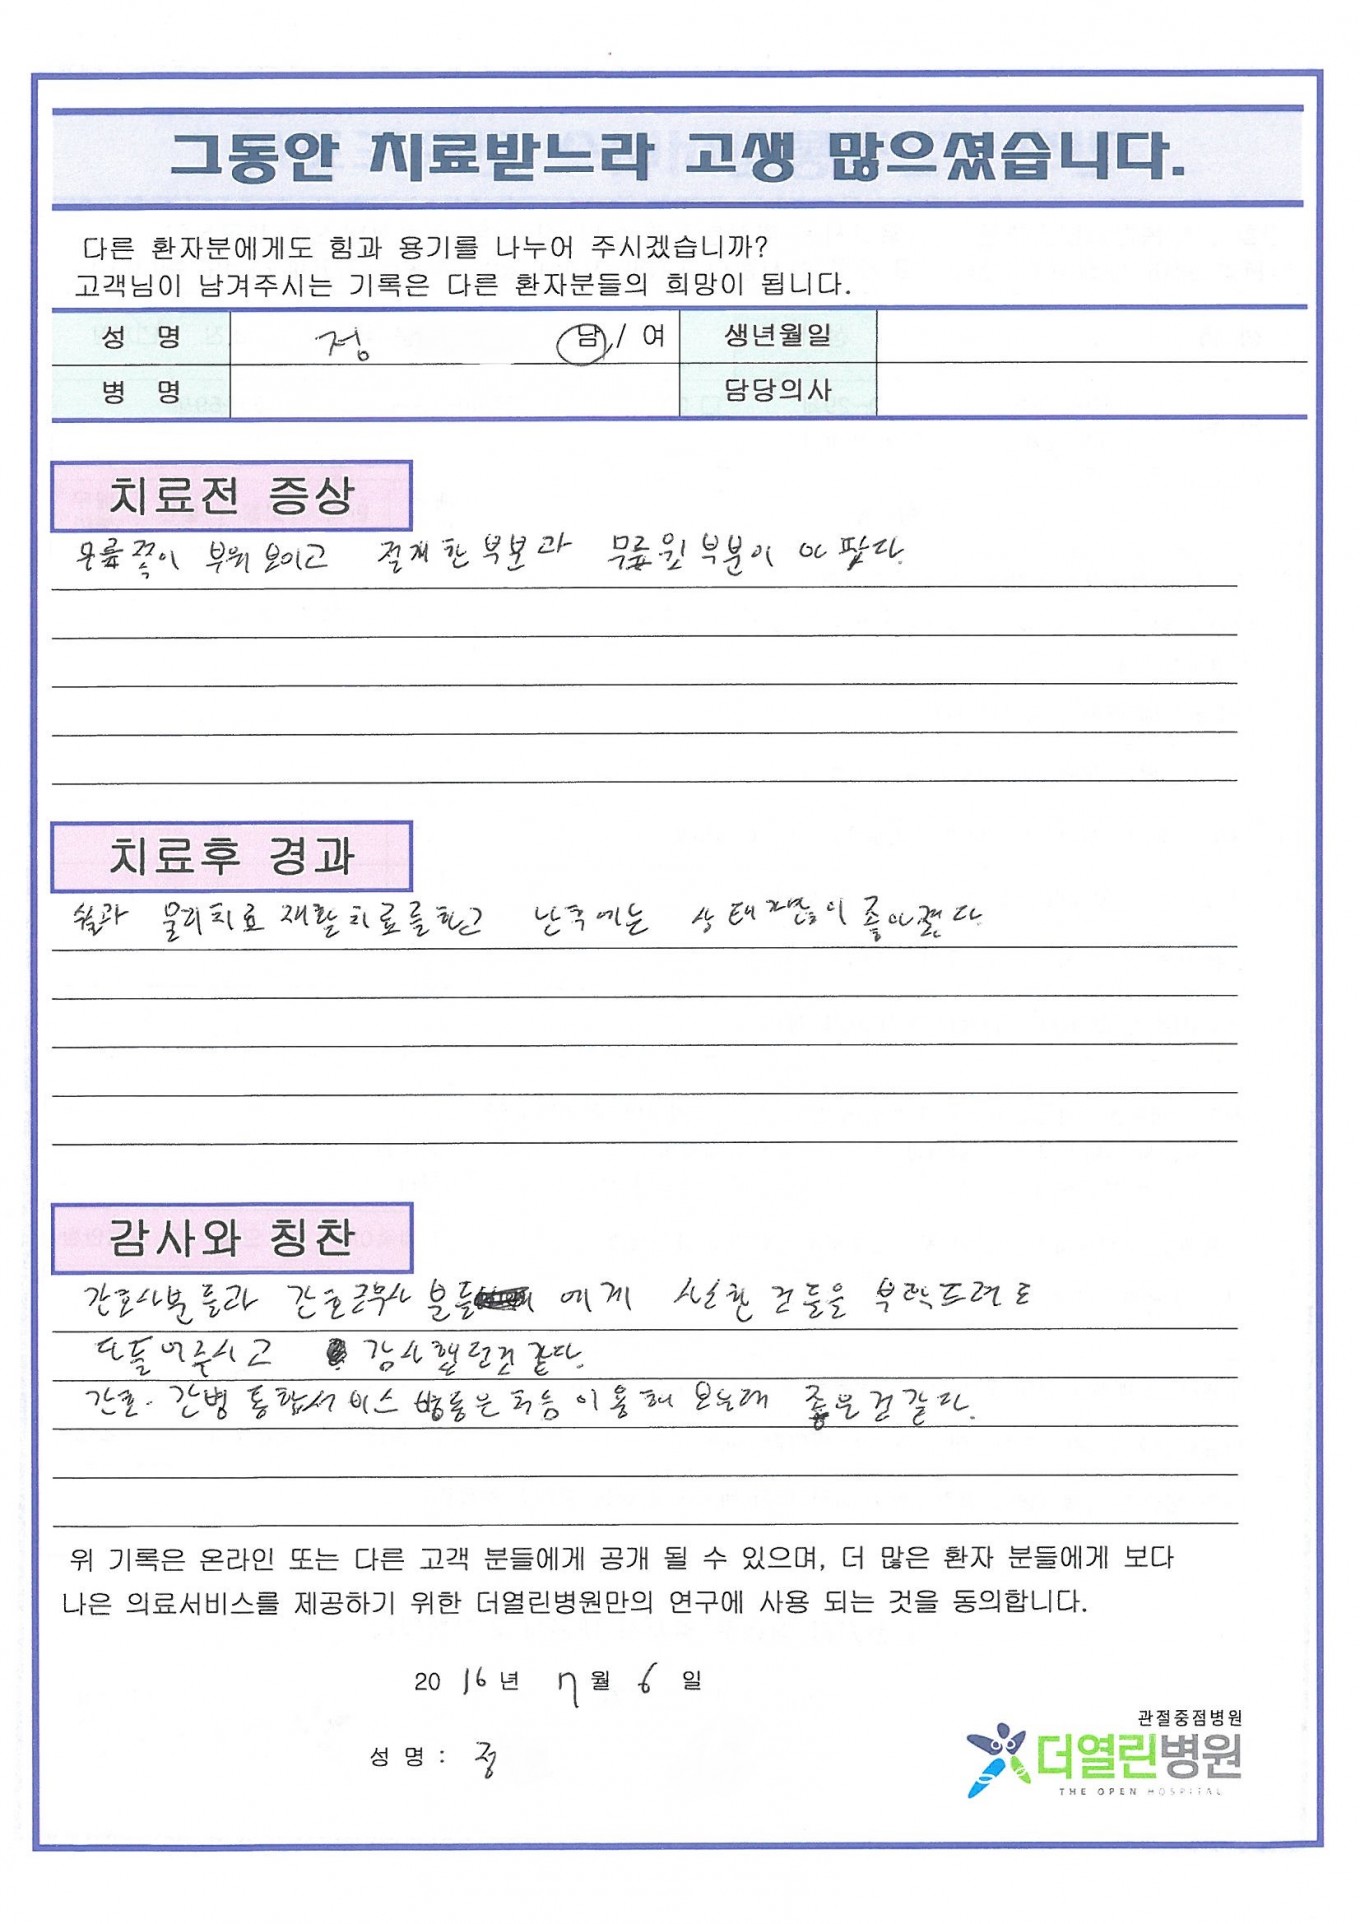 그동안 치료받느라 고생 많으셨습니다.
다른 환자분에게도 힘과 용기를 나누어 주시겠습니까?
고객님이 남겨주시는 기록은 다른 환자분들의 희망이 됩니다.
성 명 정 남 / 여 생년월일
병 명 담당의사
치료전 증상
무릎쪽이 부위 보이고 절개한 부분과 무릎윗부분이 아팠다.
치료후 경과
물리치료 재활치료를 하고 난후에는 상태가많이 좋아졌다.
감사와 칭찬
간호사분들과 간호 분들 에게 사소한 것들을 부탁드려도
다들어주시고 감사했던것 같다.
간호·간병 통합서비스 병동은 처음 이용해 보는데 좋은것같다.
위 기록은 온라인 또는 다른 고객 분들에게 공개 될 수 있으며, 더 많은 환자 분들에게 보다
나은 의료서비스를 제공하기 위한 더열린병원만의 연구에 사용 되는 것을 동의합니다.
20 16 년 7 월 6 일
성 명 : 정
관절중점병원
더열린병원
THE OPEN HOSPITAL